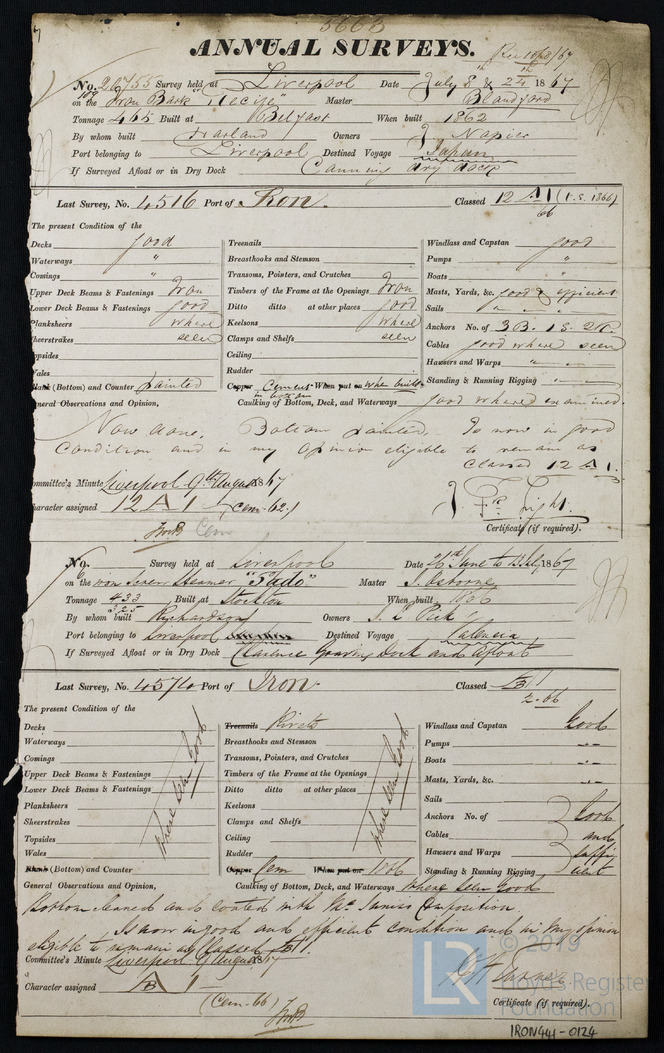 5608
ANNUAL SURVEYS.
Rec 10/8/67
No. 20755 Survey held at Liverpool Date July 8 & 24th 1867
on the Iron Bark "Recife" Master Blandford
Tonnage 465 Built at Belfast When built 1862
By whom built Harland Owners J Napier
Port belonging to Liverpool Destined Voyage Japan
If Surveyed Afloat or in Dry Dock Canning dry dock
Last Survey, No. 4516 Port of Iron. Classed 12 A 1 (1866)
66
The present Condition of the
Decks good Treenails Windlass and Capstan good
Waterways " Breasthooks and Stemson Pumps "
Comings " Transoms, Pointers, and Crutches Boats "
Upper Deck Beams & Fastenings Iron Timbers of the Frame at the Openings Iron Masts, Yards, &c. good & efficient
Lower Deck Beams & Fastenings good Ditto ditto at other places good Sails
Planksheers where Keelsons where Anchors No. of 3B. 1S. 2K.
Sheerstrakes seen Clamps and Shelfs seen Cables good where seen
Topsides Ceiling Hawsers and Warps
Wales Rudder Standing & Running Rigging
Plank (Bottom) and Counter painted Copper Cement in bottom When put on when built
General Observations and Opinion, Caulking of Bottom, Deck, and Waterways good where examined.
Now done, Bottom painted, Is now in good
condition and in my opinion eligible to remain as
Classed 12 A 1.
Committee's Minute Liverpool 9th August 1867
Character assigned 12 A 1 Cem-62
Certificate (if required).
No. Survey held at Liverpool Date 26th June to 1867
on the iron Screw Steamer "Tado" Master J. Osborne
Tonnage 433 Built at Stockton When built 1866
325
By whom built Richardson Owners
Port belonging to Liverpool Destined Voyage Valencia
If Surveyed Afloat or in Dry Dock Clarence Graving Dock and Afloat
Last Survey, No. Port of Iron Classed
2.66
The present Condition of the
Decks Treenails Rivets Windlass and Capstan Good
Waterways Breasthooks and Stemson Pumps
Comings Transoms, Pointers, and Crutches Boats
Upper Deck Beams & Fastenings Timbers of the Frame at the Openings Masts, Yards, &c.
Lower Deck Beams & Fastenings Ditto ditto at other places Sails
Planksheers Keelsons Anchors No. of Good
Sheerstrakes Clamps and Shelfs Cables and
Topsides Ceiling Hawsers and Warps suffi
Wales Rudder Standing & Running Rigging cient
where seen Good
where seen Good
Plank (Bottom) and Counter Copper Cem When put on 1866
General Observations and Opinion, Caulking of Bottom, Deck, and Waterways where seen good
Bottom cleaned and coated with Composition
Is now in good and efficient condition and in my opinion
eligible to remain as Classed
Committee's Minute Liverpool 9 August 1867
Character assigned A 1
(Cem-66)
Certificate (if required).
LR © 2019
Lloyd's Register
Foundation
IRON441-0124